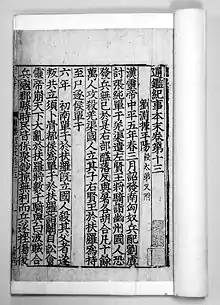 通鑑紀事本末卷第十三
劉淵據平陽
漢靈帝中平五年春三月詔發南匈奴兵配劉虞
討張純單于羌渠遣左賢王將騎詣幽州國人恐
發兵無已於是右部䤈落反與屠各胡合凡十餘
萬人攻殺羌渠國人立其子右賢王於扶羅為持
至尸逐侯單于
六年 初南單于於扶羅既立國人殺其父者遂
叛共立須卜骨都侯為單于於扶羅詣闕自訟會
靈帝崩天下大亂於扶羅將數千騎與白波賊合
兵寇郡縣時民皆保聚鈔掠無利而兵遂挫傷復